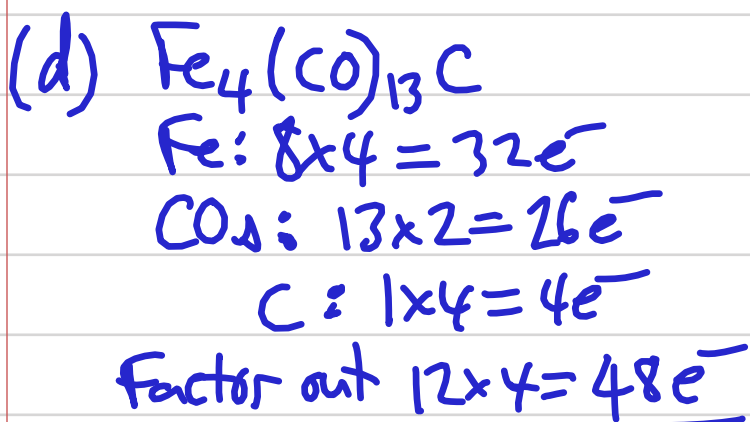 (d) Fe₄(CO)₁₃C
Fe: 8x4 = 32e⁻
COs: 13x2 = 26e⁻
C: 1x4 = 4e⁻
Factor out 12x4 = 48e⁻